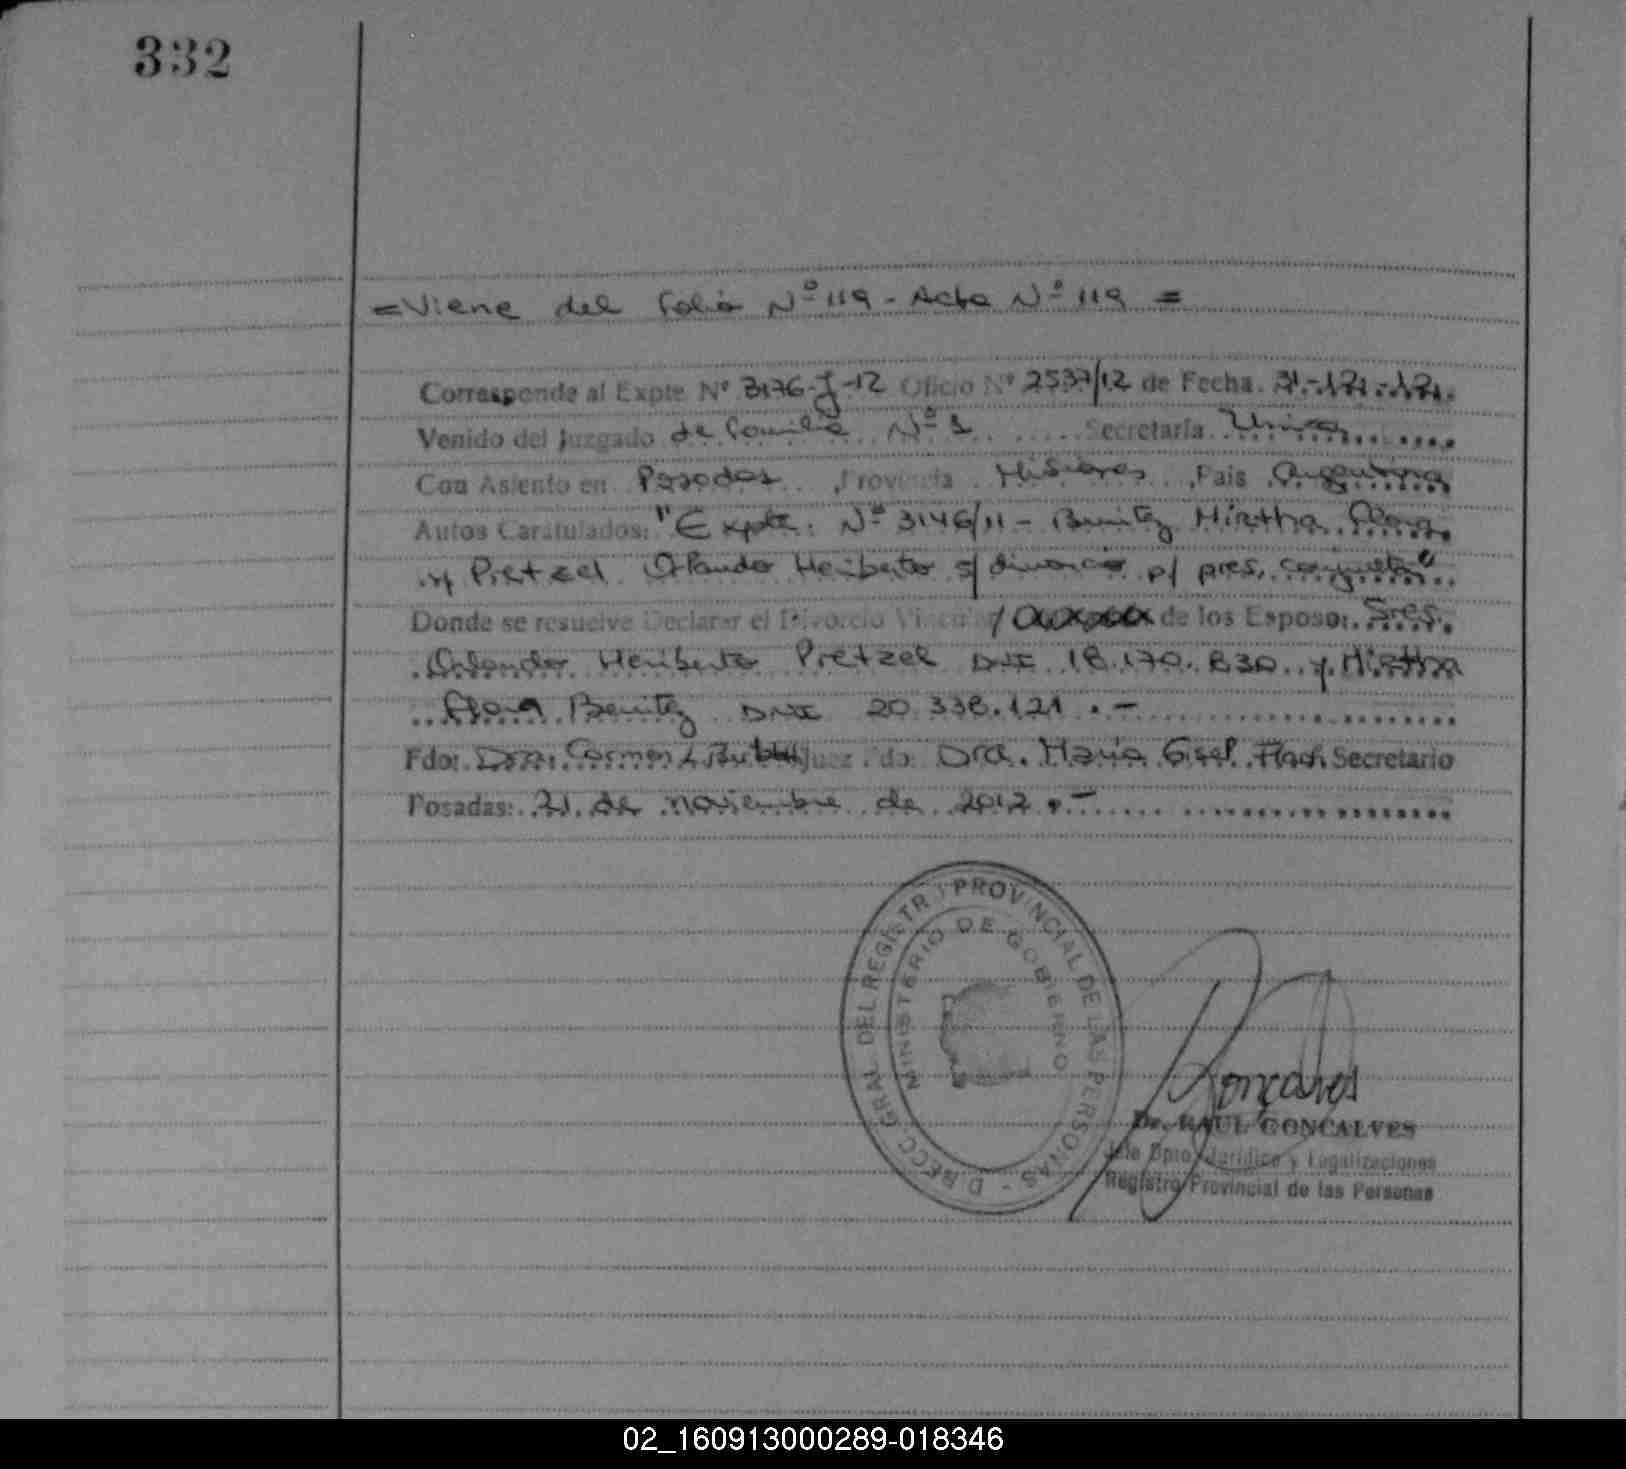 332
= Viene del Folio Nº 119 - Acta Nº 119 =
Corresponde al Expte Nº 3176-J-12 Oficio Nº 2537/12 de Fecha. -12-12.
Venido del Juzgado de Familia Nº 1 Secretaría Unica
Con Asiento en Posadas, Provincia Misiones, País Argentina
Autos Caratulados: "Expte. Nº 3146/11 - Benitez Mirtha Flora
y Pretzel Orlando Heriberto s/ divorcio p/ pres. conjunta"
Donde se resuelve Declarar el Divorcio Vincular / de los Esposo: Sres.
Orlando Heriberto Pretzel DNI 18.170.830 y Mirtha
Flora Benitez DNI 20.338.121.-
Fdo: Dra. Carmen Juez Fdo: Dra. Maria Gisel Secretario
Posadas: 21 de noviembre de 2012.-
DIRECC. GRAL. DEL REGISTRO PROVINCIAL DE LAS PERSONAS -
MINISTERIO DE GOBIERNO
Goncalves
Dr. RAUL GONCALVES
Jefe Dpto. Jurídico y Legalizaciones
Registro Provincial de las Personas
02_160913000289-018346